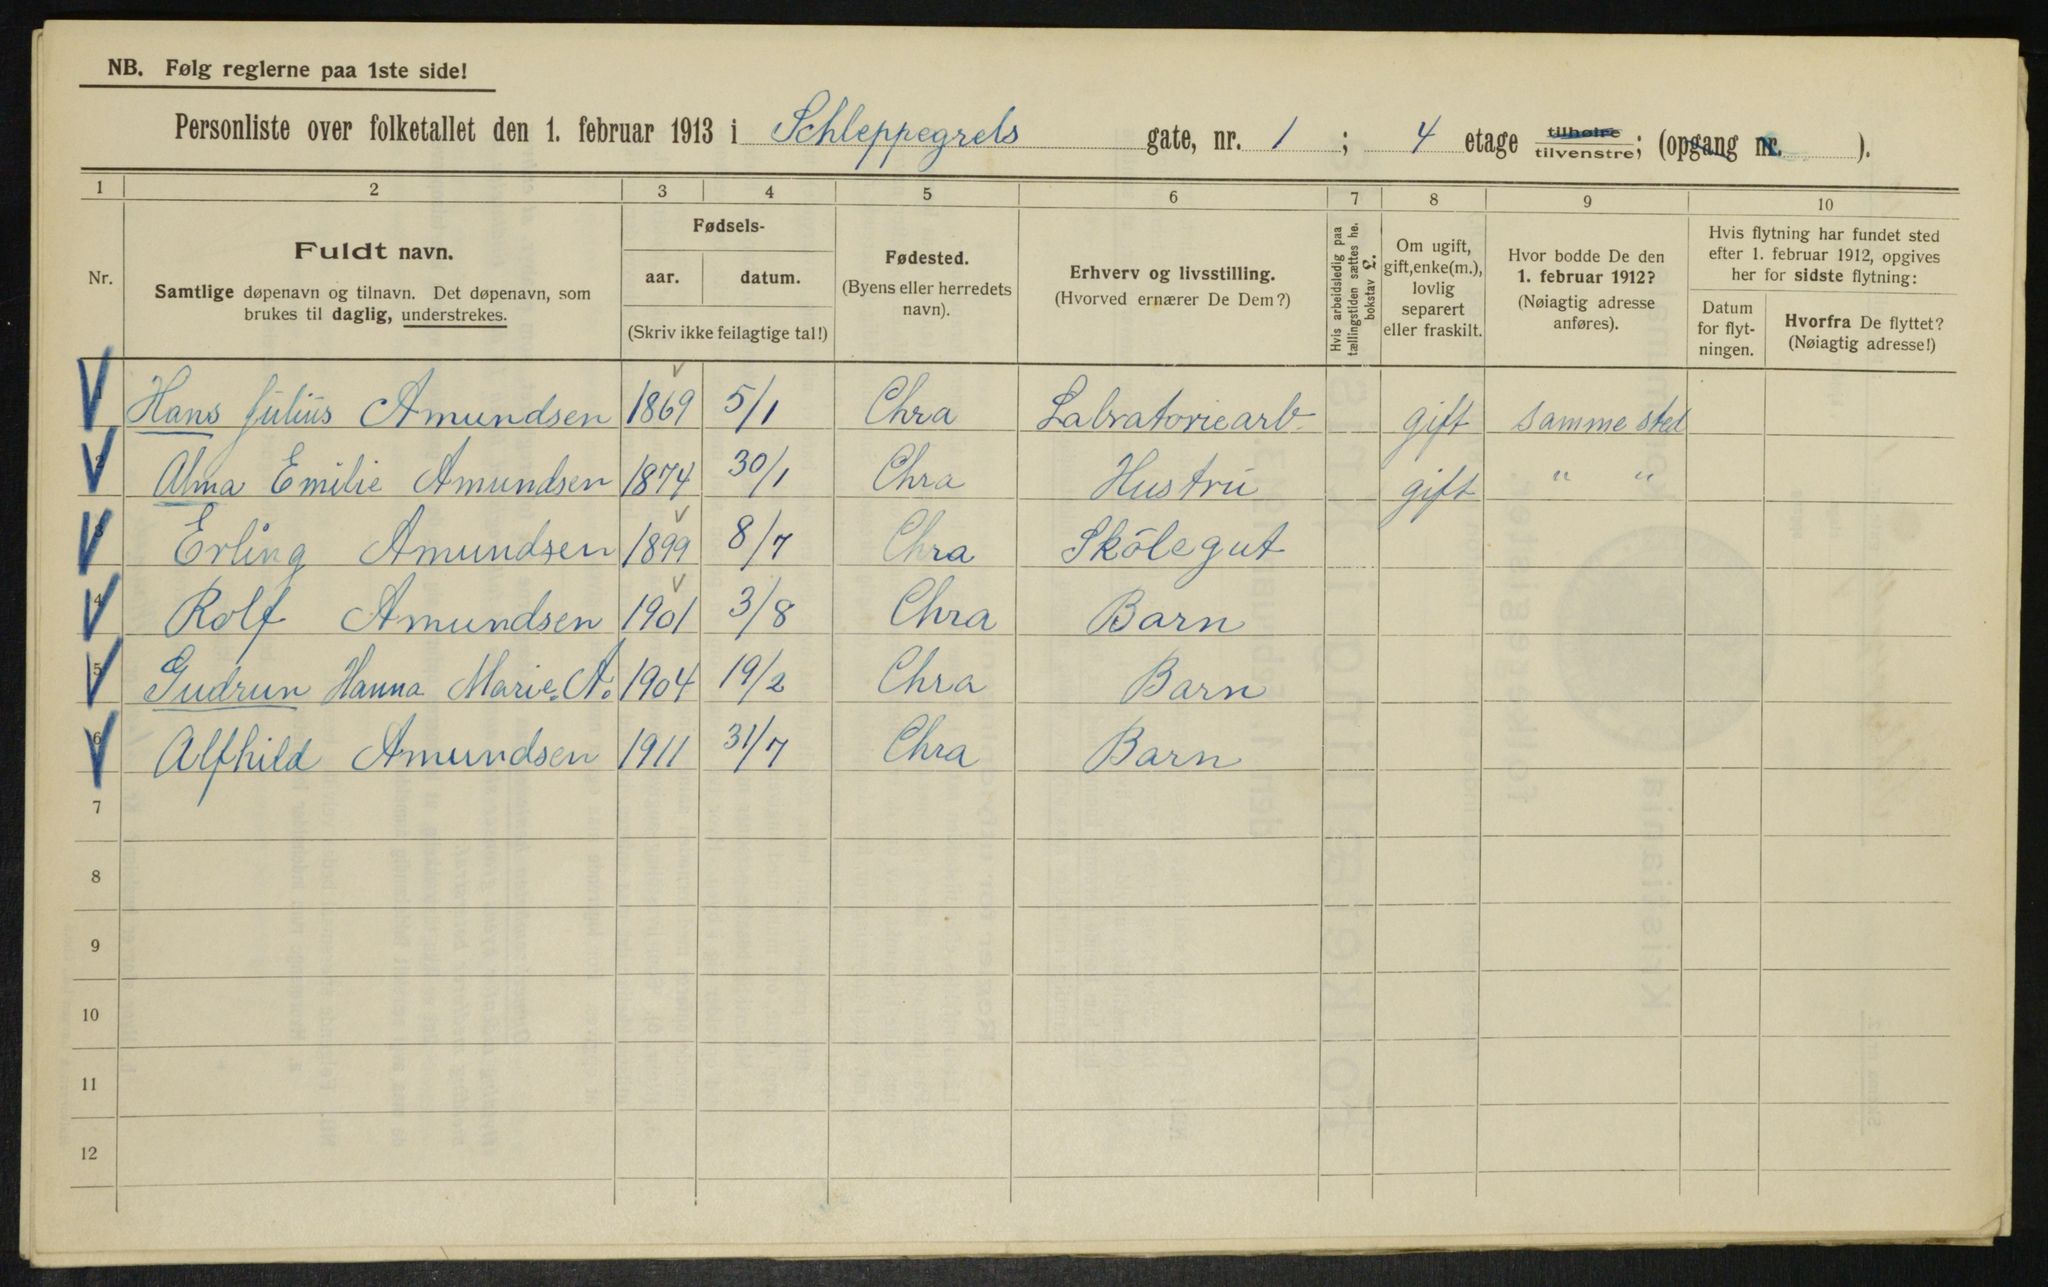 NB. Følg reglerne paa 1ste side!
Personliste over folketallet den 1. februar 1913 i Schleppegrels gate, nr. 1 ; 4 etage tilhøire tilvenstre; (opgang nr. ).
1 2 3 4 5 6 7 8 9 10
Nr.
Fuldt navn.
Samtlige døpenavn og tilnavn. Det døpenavn, som
brukes til daglig, understrekes.
Fødsels-
aar. datum.
(Skriv ikke feilagtige tal!)
Fødested.
(Byens eller herredets
navn).
Erhverv og livsstilling.
(Hvorved ernærer De Dem?)
Hvis arbeidsledig paa
tællingstiden sættes he.
bokstav L.
Om ugift,
gift, enke(m.),
lovlig
separert
eller fraskilt.
Hvor bodde De den
1. februar 1912?
(Nøiagtig adresse
anføres).
Hvis flytning har fundet sted
efter 1. februar 1912, opgives
her for sidste flytning:
Datum
for flyt-
ningen.
Hvorfra De flyttet?
(Nøiagtig adresse!)
1 Hans Julius Amundsen 1869 5/1 Chra Labratoriearb gift samme sted
2 Alma Emilie Amundsen 1874 30/1 Chra Hustru gift " "
3 Erling Amundsen 1899 8/7 Chra Skolegut
4 Rolf Amundsen 1901 3/8 Chra Barn
5 Gudrun Hanna Marie. A. 1904 19/2 Chra Barn
6 Alfhild Amundsen 1911 31/7 Chra Barn
7
8
9
10
11
12